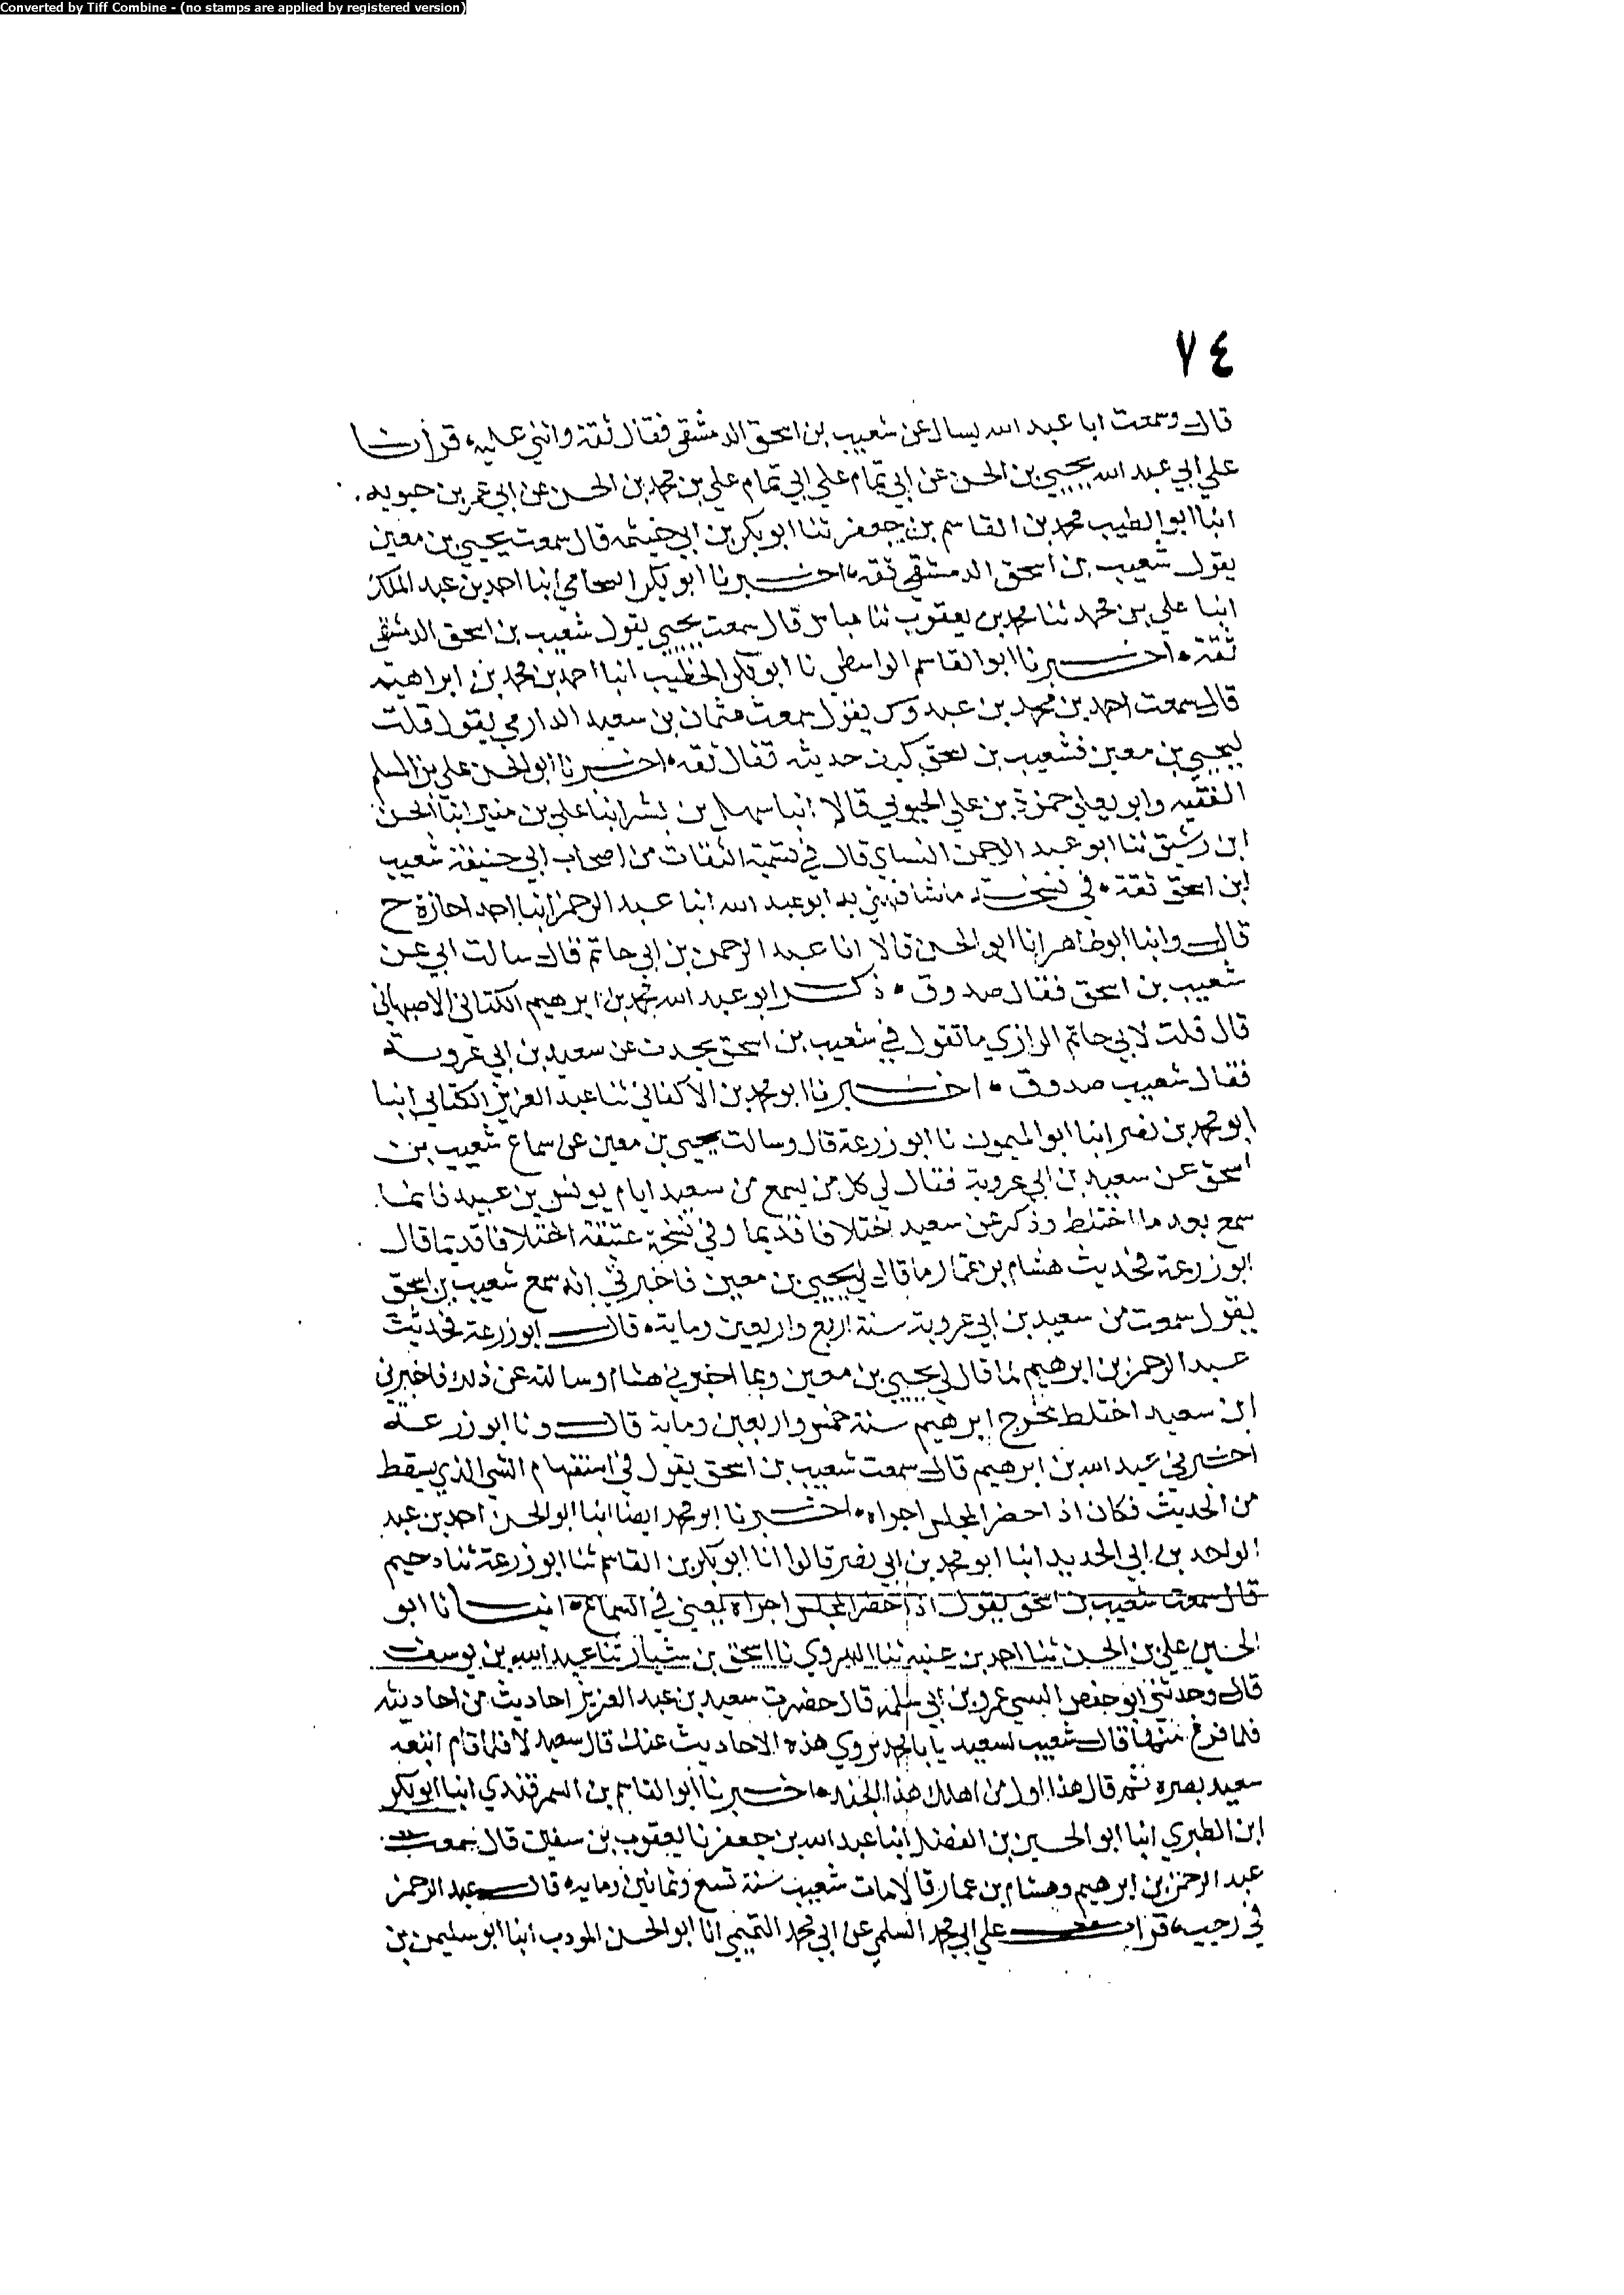 Converted by Tiff Combine - (no stamps are applied by registered version)
٧٤
قال وسمعت ابا عبد الله يسال عن شعيب بن اسحق الدمشقي فقال ثقة واثني عليه، قرأت
علي ابي عبد الله يحيي بن الحسن عن ابي تمام علي ابي تمام علي بن محمد بن الحسن عن ابي عمر بن حيويه.
انبا ابو الطيب محمد بن القاسم بن جعفر ثنا ابو بكر بن ابي خيثمه قال سمعت يحيي بن معين
يقول شعيب بن اسحق الدمشقي ثقه، اخبرنا ابو بكر السحامي انبا احمد بن عبد الملك
انبا علي بن محمد ثنا محمد بن يعقوب ثنا عباس قال سمعت يحيي يقول شعيب بن اسحق الدمشقي
ثقة، اخبرنا ابو القاسم الواسطي نا ابو بكر الخطيب انبا احمد بن محمد بن ابراهيم
قال سمعت احمد بن محمد بن عبدوس يقول سمعت عثمان بن سعيد الدارمي يقول قلت
ليحيي بن معين فشعيب بن اسحق كيف حديثه فقال ثقه، اخبرنا ابو الحسن علي بن المسلم
الفقيه وابو يعلي حمزة بن علي الحبوبي قالا انبا سهل بن بشر انبا علي بن منير انبا الحسن
ابن رشيق ثنا ابو عبد الرحمن النساي قال في تسمية الثقات من اصحاب ابي حنيفة شعيب
ابن اسحق ثقة، في نسخة ما شافهني به ابو عبد الله انبا عبد الرحمن انبا احمد اجازة ح
قال وانبا ابو طاهر انا ابو الحسن قالا انا عبد الرحمن بن ابي حاتم قال سالت ابي عن
شعيب بن اسحق فقال صدوق، ذكر ابو عبد الله محمد بن ابرهيم الكتاني الاصبهاني
قال قلت لابي حاتم الرازي ما تقول في شعيب بن اسحق يحدث عن سعيد بن ابي عروبة
فقال شعيب صدوق، اخبرنا ابو محمد بن الاكفاني ثنا عبد العزيز الكتاني انبا
ابو محمد بن نصر انبا ابو الميمون نا ابو زرعة قال وسالت يحيي بن معين عن سماع شعيب بن
اسحق عن سعيد بن ابي عروبة فقال لي كل من يسمع من سعيد ايام يونس بن عبيد فانما
سمع بعد ما اختلط وذكر عن سعيد اختلافا قديما وفي نسخة عتيقة اختلافا قديما قال
ابو زرعة فحديث هشام بن عمار ما قال لي يحيي بن معين فاخبرني انه سمع شعيب بن اسحق
يقول سمعت من سعيد بن ابي عروبة سنة اربع واربعين ومايه، قال ابو زرعة فحديث
عبد الرحمن بن ابرهيم بما قال لي يحيي بن معين وبما اخبرني هشام وسالته عن ذلك فاخبرني
ان سعيد اختلط مخرج ابرهيم سنة خمس واربعين وماية قال ونا ابو زرعة
اخبرني عبد الله بن ابرهيم قال سمعت شعيب بن اسحق يقول في استفهام الشي الذي يسقط
من الحديث فكان اذا حضر المجلس اجزاه، اخبرنا ابو محمد ايضا انبا ابو الحسن احمد بن عبد
الواحد بن ابي الحديد انبا ابو محمد بن ابي نصر قالوا انا ابو بكر بن القاسم ثنا ابو زرعة ثنا دحيم
قال سمعت شعيب بن اسحق يقول اذا حضر المجلس اجزاه يعني في السماع، انبانا ابو
الحسين علي بن الحسن ثنا احمد بن عتبه ثنا الهروي نا اسحق بن سيار ثنا عبد الله بن يوسف
قال وحدثني ابو حفص عمرو بن ابي سلمه قال حضرت سعيد بن عبد العزيز احاديث من احاديثه
فلما فرغ منها قال شعيب لسعيد يابا محمد نروي هذه الاحاديث عنك قال سعيد لا فلما قام اتبعه
سعيد بصره ثم قال هذا اول من اهلك هذا الجند، اخبرنا ابو القاسم بن السمرقندي انبا ابو بكر
ابن الطبري انبا ابو الحسين بن الفضل انبا عبد الله بن جعفر نا يعقوب بن سفين قال سمعت
عبد الرحمن بن ابرهيم وهشام بن عمار قالا مات شعيب سنة تسع وثمانين ومايه، قال عبد الرحمن
في رجب، قرات علي ابي محمد السلمي عن ابي محمد التميمي انا ابو الحسن المودب انبا ابو سليمن بن